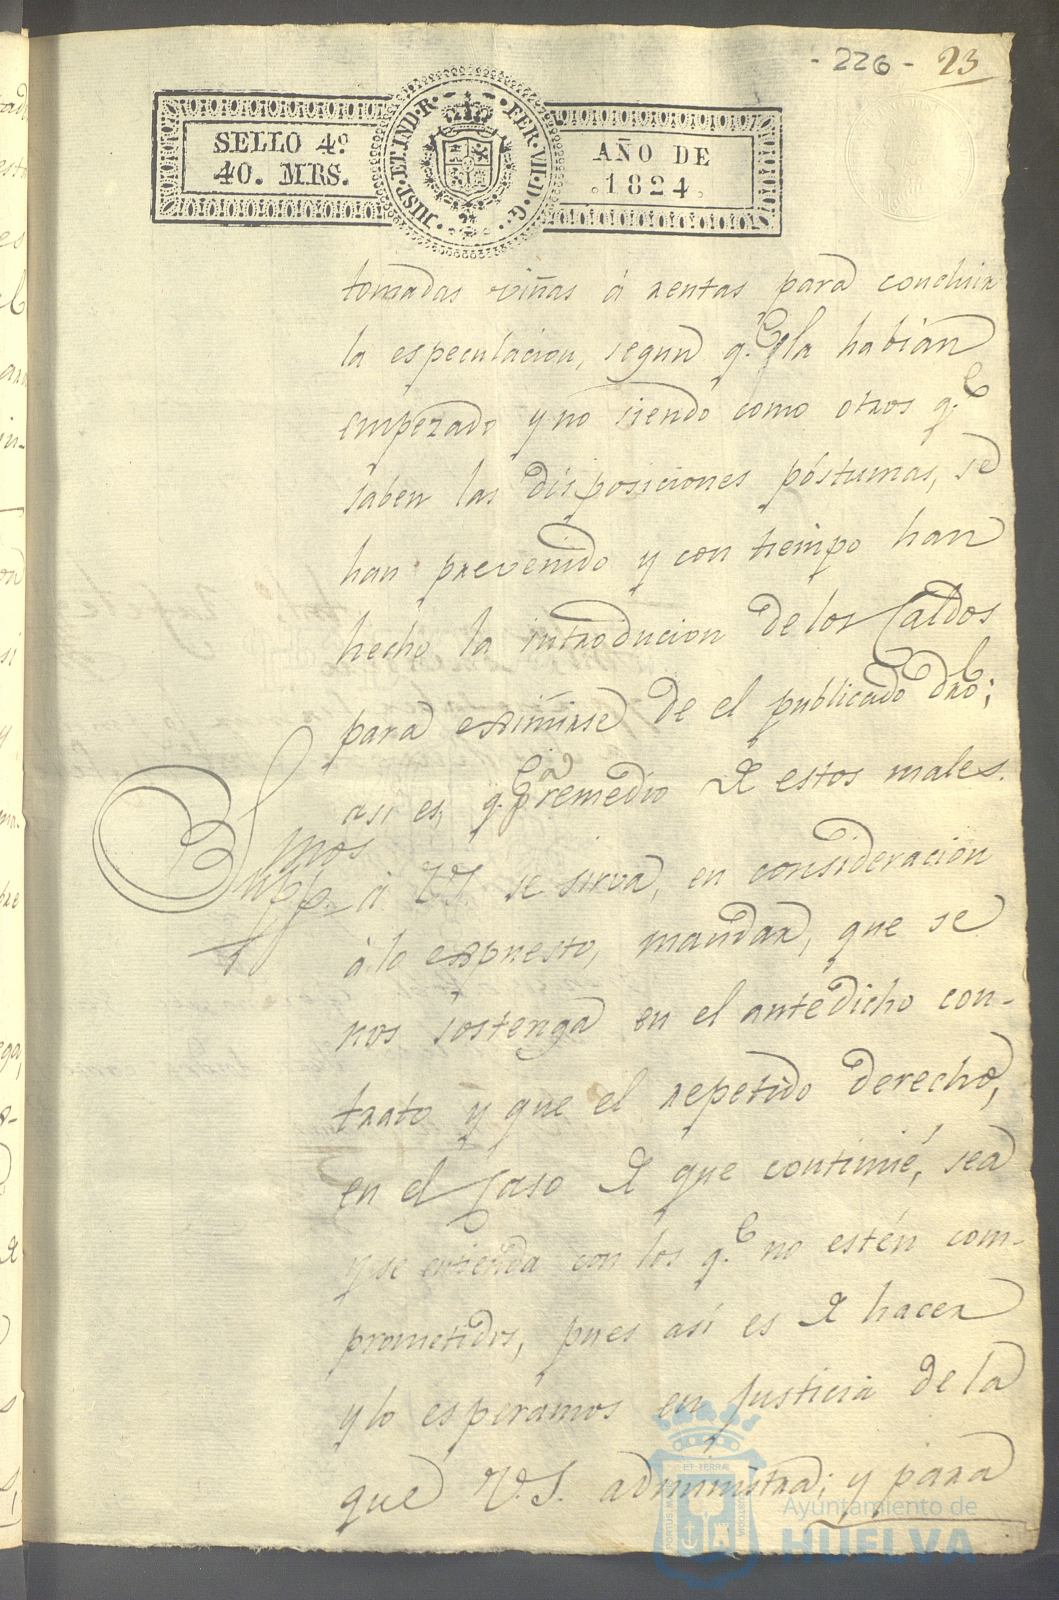 - 226 - 23
SELLO 4º
40. MRS.
HISP. ET IND. R. FER. VII. D. G.
AÑO DE
1824.
tomadas viñas á rentas para concluir
la especulacion, segun q.e la habian
empezado y no siendo como otros q.e
saben las disposiciones póstumas, se
han prevenido y con tiempo han
hecho la introducion de los Caldos
para eximirse de el publicado dro;
asi es, q.e p.a remedio de estos males.
Supp.mos á V.S. se sirva, en consideracion
á lo expuesto, mandar, que se
nos sostenga en el antedicho con-
trato y que el repetido derecho,
en el Caso de que continué, sea
y se entienda con los q.e no estén com-
prometidos, pues así es de hacer
y lo esperamos en justicia de la
que V.S. administra; y para
Ayuntamiento de
HUELVA